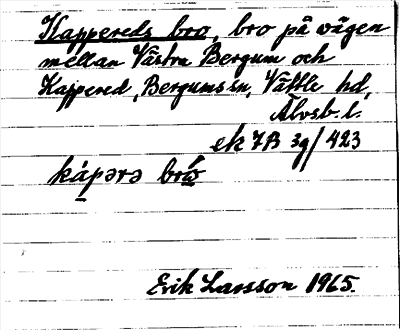 Kappereds bro, bro på vägen
mellan Västra Bergum och
Kappered, Bergums sn, Vättle hd,
Älvsb. l.
ek 7B 3g/423
kápərə brω̂
Erik Larsson 1965.